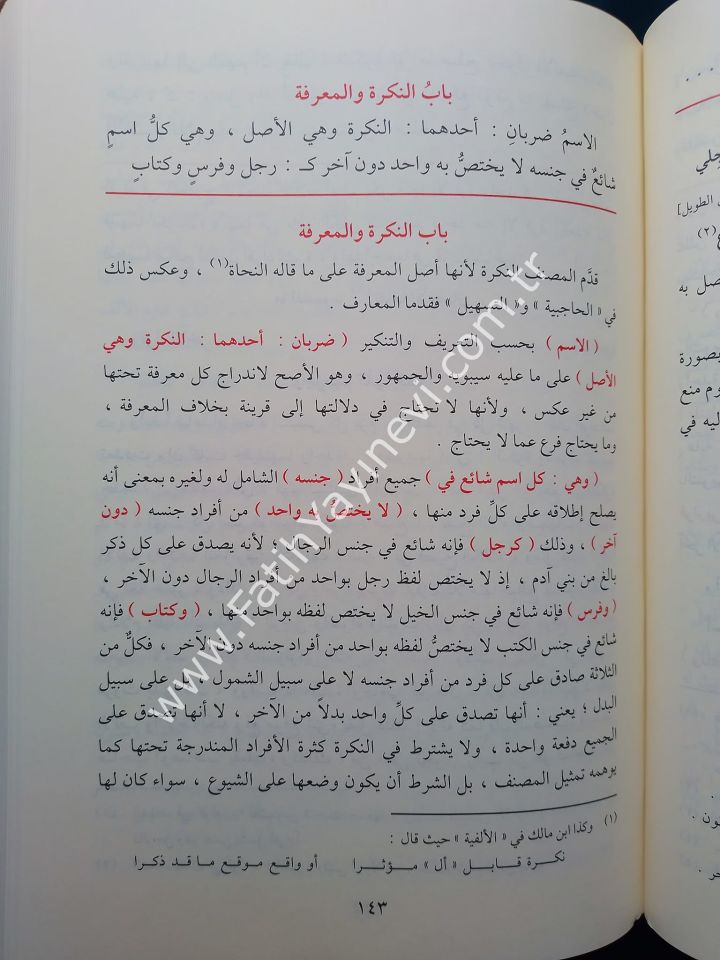 بابُ النكرة والمعرفة
الاسمُ ضربانِ : أحدهما : النكرة وهي الأصل ، وهي كلُّ اسمٍ
شائعٌ في جنسه لا يختصُّ به واحد دون آخر كـ : رجل وفرسٍ وكتابٍ
باب النكرة والمعرفة
قدَّم المصنف النكرة لأنها أصل المعرفة على ما قاله النحاة(١) ، وعكس ذلك
في « الحاجبية » و« التسهيل » فقدما المعارف .
( الاسم ) بحسب التعريف والتنكير ( ضربان : أحدهما : النكرة وهي
الأصل ) على ما عليه سيبويه والجمهور ، وهو الأصح لاندراج كل معرفة تحتها
من غير عكس ، ولأنها لا تحتاج في دلالتها إلى قرينة بخلاف المعرفة ،
وما يحتاج فرع عما لا يحتاج .
( وهي : كل اسم شائع في ) جميع أفراد ( جنسه ) الشامل له ولغيره بمعنى أنه
يصلح إطلاقه على كلِّ فرد منها ، ( لا يختصُّ به واحد ) من أفراد جنسه ( دون
آخر ) ، وذلك ( كرجل ) فإنه شائع في جنس الرجال ؛ لأنه يصدق على كل ذكر
بالغ من بني آدم ، إذ لا يختص لفظ رجل بواحد من أفراد الرجال دون الآخر ،
( وفرس ) فإنه شائع في جنس الخيل لا يختص لفظه بواحد منها ، ( وكتاب ) فإنه
شائع في جنس الكتب لا يختصُّ لفظه بواحد من أفراد جنسه دون الآخر ، فكلٌّ من
الثلاثة صادق على كل فرد من أفراد جنسه لا على سبيل الشمول ، بل على سبيل
البدل ؛ يعني : أنها تصدق على كلِّ واحد بدلاً من الآخر ، لا أنها تصدق على
الجميع دفعة واحدة ، ولا يشترط في النكرة كثرة الأفراد المندرجة تحتها كما
يوهمه تمثيل المصنف ، بل الشرط أن يكون وضعها على الشيوع ، سواء كان لها
(١) وكذا ابن مالك في « الألفية » حيث قال :
نكرة قابل « أل » مؤثرا أو واقع موقع ما قد ذكرا
١٤٣
www.FatihYayinevi.com.tr
جلي
ن الطويل]
(٢)
صل به
بصورة
وم منع
ليه في